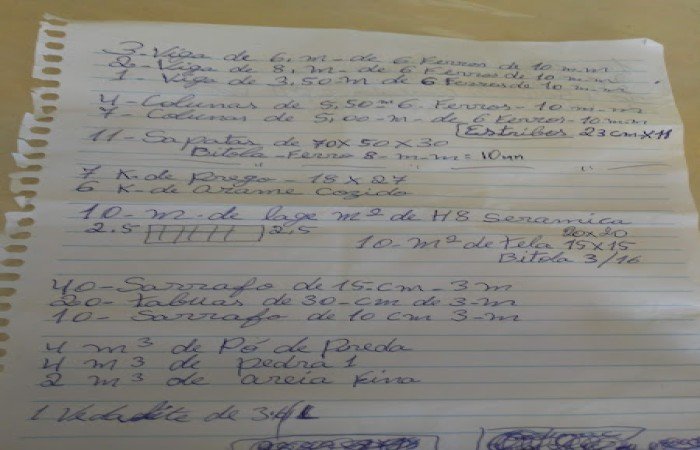 3-Viga de 6,m-de 6 Ferros de 10 m.m
2-Viga de 8, m-de 6 Ferros de 10 m.m
1 Viga de 3,50 m de 6 Ferros de 10 m.m
4-Colunas de 5,50 m 6. Ferros-10 m.m
7-Colunas de 5,00-m-de 6 Ferros-10 m.m
Estribos 23cm x 11
11-Sapatas de 70x50x30
Bitola-Ferro 8-m-m=10mm
7 K. de Prego-18x27
6 K-de arame Cozido
10-m-de lage m² de H8 Seramica
2.5 2.5
20x20
10-m² de Tela 15x15
Bitola 3/16
40-Sarrafo de 15-cm-3 m
20-Tabuas de 30-cm de 3-m
10-Sarrafo de 10 cm 3-m
4 m³ de Pó de Pireda
4 m³ de pedra 1
2 m³ de areia Fina
1 de